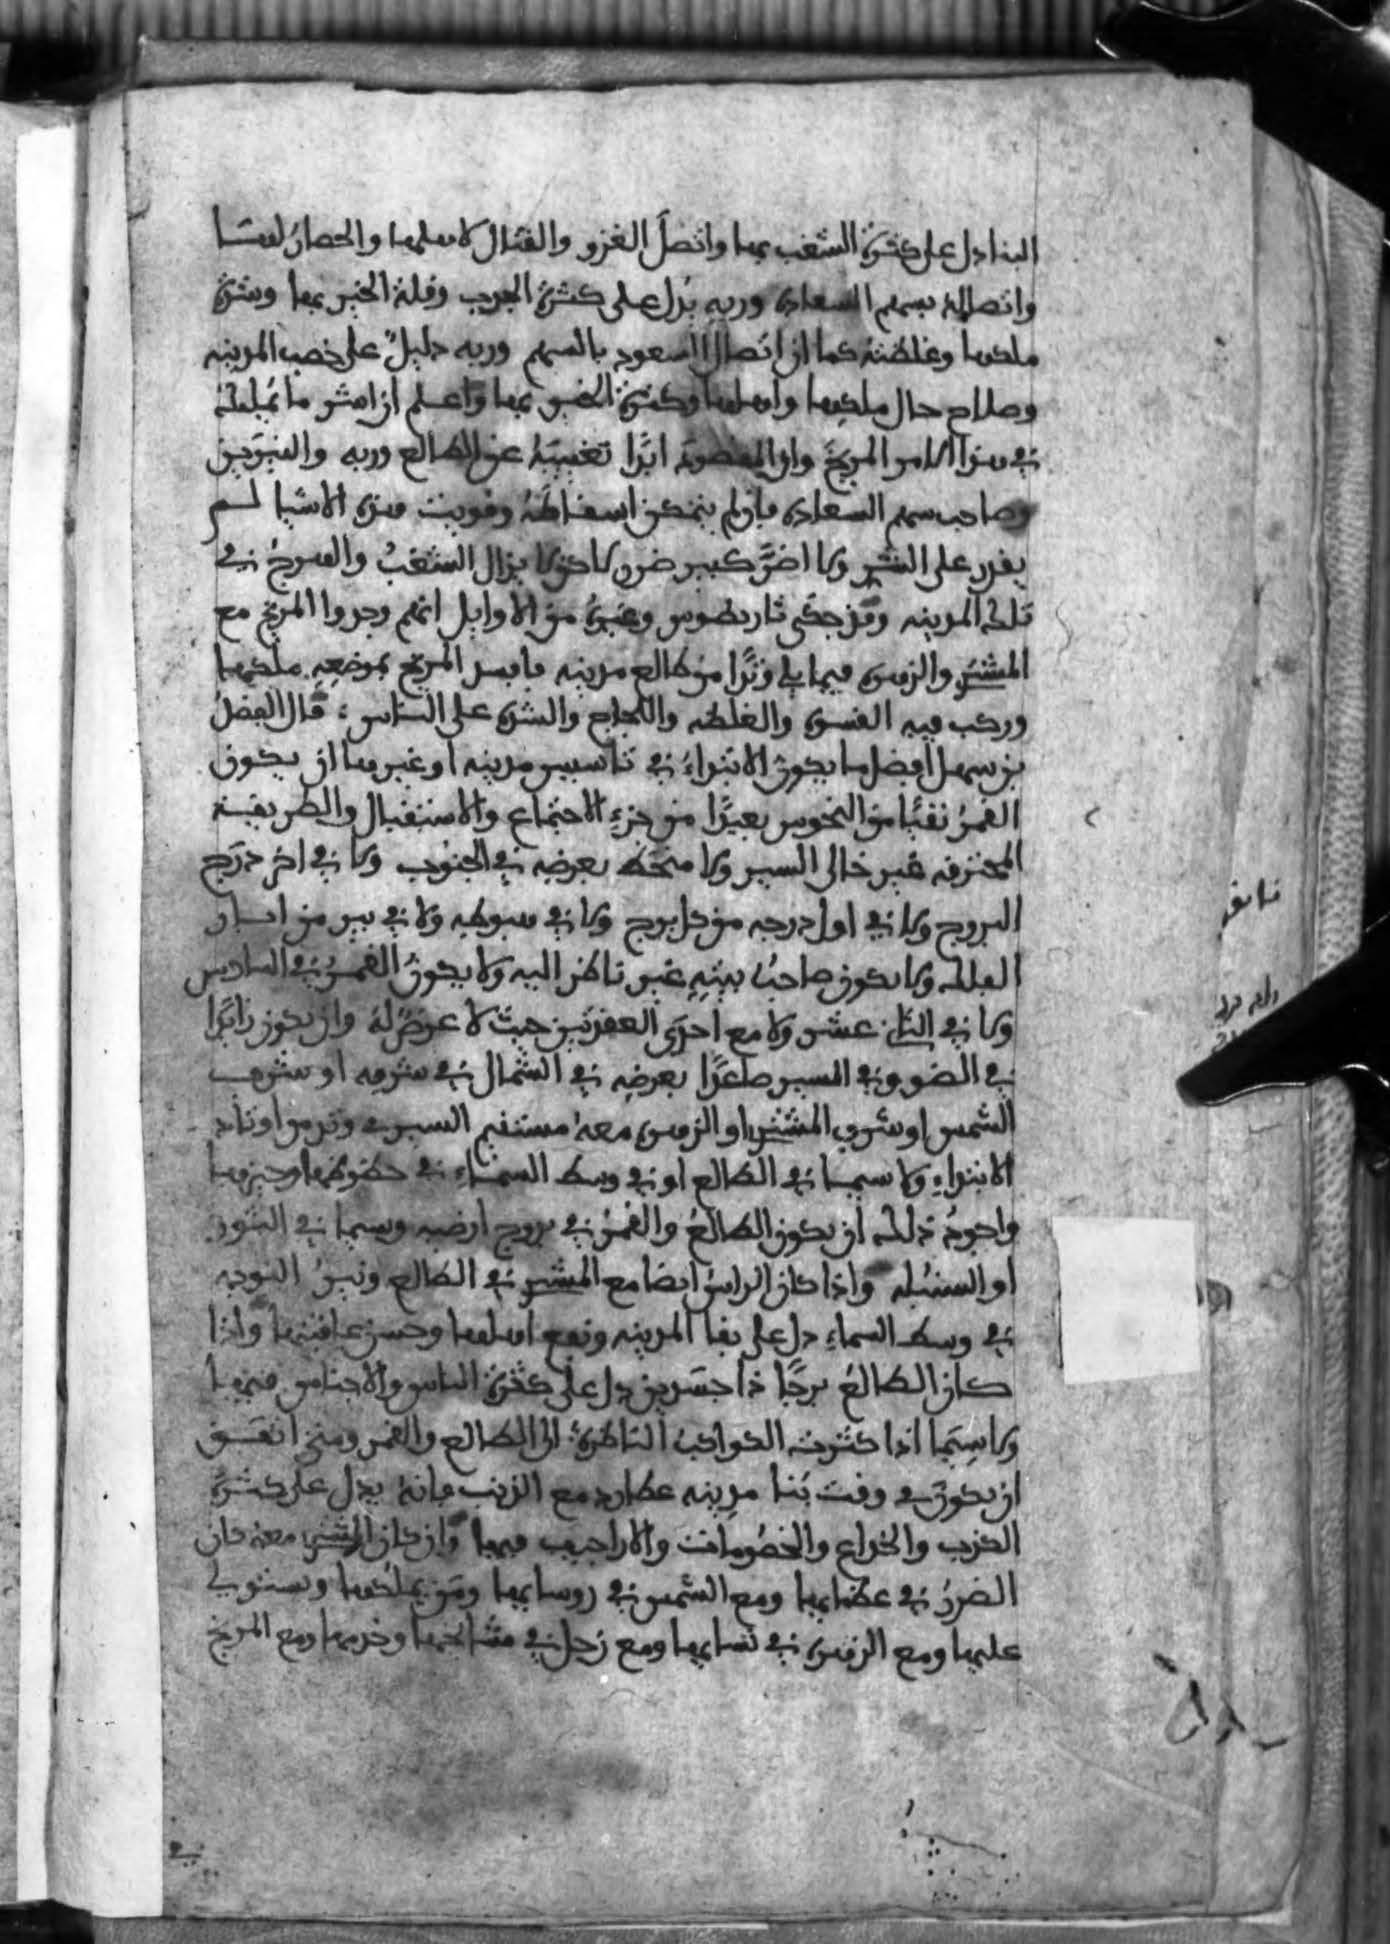 البنا دل على كثرة الشغب بها واتصل الغزو والقتال لاهلها والحصار لها
واتصاله بسهم السعاده وربه يدل على كثرة الحرب وقلة الخير بها وشدة
ملكها وغلظته كما ان اتصال السعود بالسهم وربه دليل على خصب المدينه
وصلاح حال ملكها واهلها وكثرة الخير بها واعلم ان اشر ما
في هذا الامر المريخ وان ابدا تغييبه عن الطالع وربه والنيرين
وصاحب سهم السعاده فان لم يتمكن اسقاطه وقويت هذه الاشيا لم
يقدر على الشر ولا اضر كبير ضرر لاكن لا يزال الشغب والهرج في
تلك المدينه وقد حكى وغيره من الاوايل انهم وجدوا المريخ مع
المشتري والزهره فيما يلي وتدا من طالع مدينه فافسد المريخ بموضعه ملكها
وركب فيه القسوه والغلظه واللجاج والشده على الناس : قال الفضل
بن سهل افضل ما يكون الابتداء في تاسيس مدينه او غيرها ان يكون
القمر نقيا من النحوس بعيدا من جزء الاجتماع والاستقبال والطريقة
المحترقه غير خالي السير ولا منحط بعرضه في الجنوب ولا في اخر درج
البروج ولا في اول درجه من كل برج ولا في هبوطه ولا في بير من ابار
الفلك ولا يكون صاحب بيته غير ناظر اليه ولا يكون القمر في السادس
ولا في الثاني عشر ولا مع احدى العقدتين حيث لا عرض له وان يكون زايدا
في الضو وفي المسير صاعدا بعرضه في الشمال في شرفه او شرف
الشمس او شرف المشتري او الزهره معه مستقيم السير في اوتاد
الابتداء ولا سيما في الطالع او في وسط السماء في حظوظها وحيزها
واجود ذلك ان يكون الطالع والقمر في بروج ارضيه وسيما في الثور
او السنبله واذا كان الراس ايضا مع المشتري في الطالع ونير النوبه
في وسط السماء دل على بقا المدينه ونفع اهلها وحسن عاقبتها واذا
كان الطالع برجا ذا جسدين دل على كثرة الناس والاجناس فيها
ولا سيما اذا كثرت الكواكب الناظرة الى الطالع والقمر ومتى اتفق
ان يكون في وقت بنا مدينه عطارد مع الذنب فانه يدل على كثرة
الكذب والخداع والخصومات والاراجيف فيها وان كان المشتري معه كان
الضرر في عظمايها ومع الشمس في روسايها ومن يملكها ويستولي
عليها ومع الزهره في نسايها ومع زحل في مشايخها وخدمها ومع المريخ
في